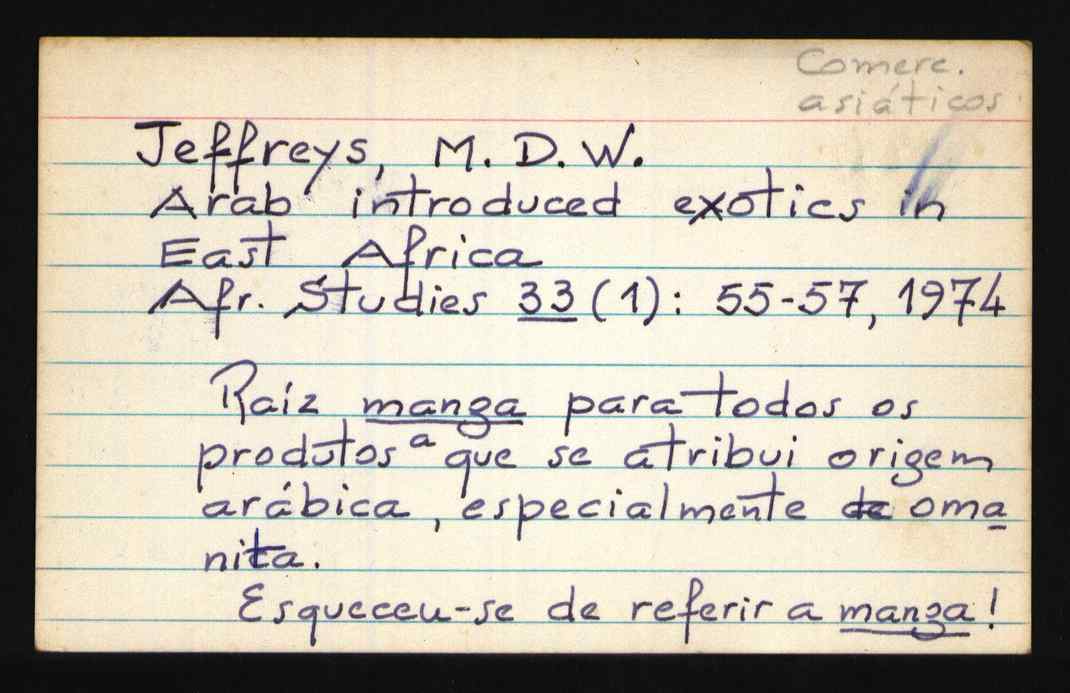 Comerc.
asiáticos
Jeffreys, M. D. W.
Arab introduced exotics in
East Africa
Afr. Studies 33 (1): 55-57, 1974
Raíz manga para todos os
produtos a que se atribui origem
arábica, especialmente de oma
nita.
Esqueceu-se de referir a manga!